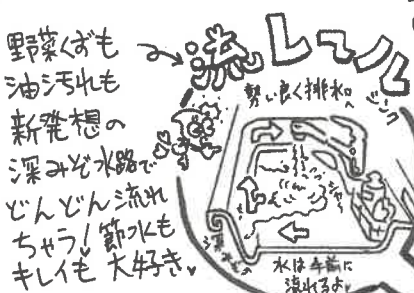 野菜くずも
油汚れも
新発想の
深みぞ水路で
どんどん流れ
ちゃう!節水も
キレイも大好き
流レール
シンク
勢い良く排水
シャー
水は手前に
流れるよ